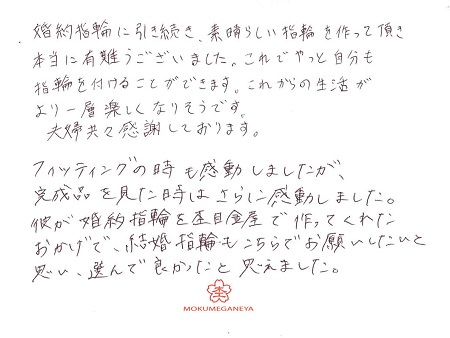 婚約指輪に引き続き、素晴らしい指輪を作って頂き
本当に有難うございました。これでやっと自分も
指輪を付けることができます。これからの生活が
より一層楽しくなりそうです。
夫婦共々感謝しております。
フィッティングの時も感動しましたが、
完成品を見た時はさらに感動しました。
彼が婚約指輪を杢目金屋で作ってくれた
おかげで、結婚指輪もこちらでお願いしたいと
思い、選んで良かったと思えました。
杢
MOKUMEGANEYA